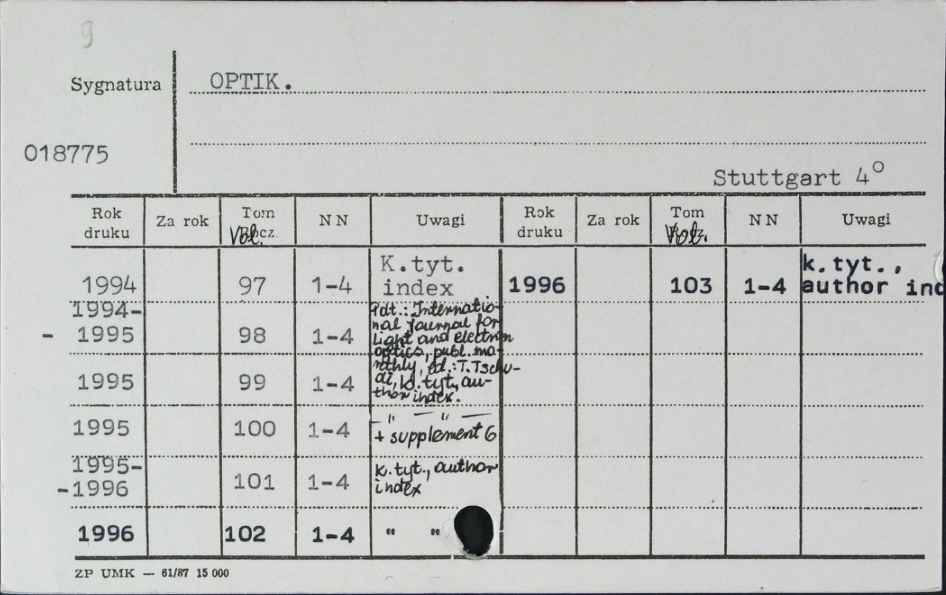 9
Sygnatura OPTIK.
018775
Stuttgart 4°
Rok druku Za rok Tom Vol. NN Uwagi Rok druku Za rok Tom Vol. NN Uwagi
1994 97 1-4 K.tyt. index 1996 103 1-4 k.tyt., author ind
1994-
- 1995 98 1-4 Pdt.: Internatio-
nal journal for
light and electron
optics, publ. mo-
nthly, ed.: T. Tschu-
1995 99 1-4 di, k. tyt, au-
thor index.
1995 100 1-4 — " — " —
+ supplement 6
1995-
-1996 101 1-4 k. tyt., author
index
1996 102 1-4 " "
ZP UMK — 61/87 15 000